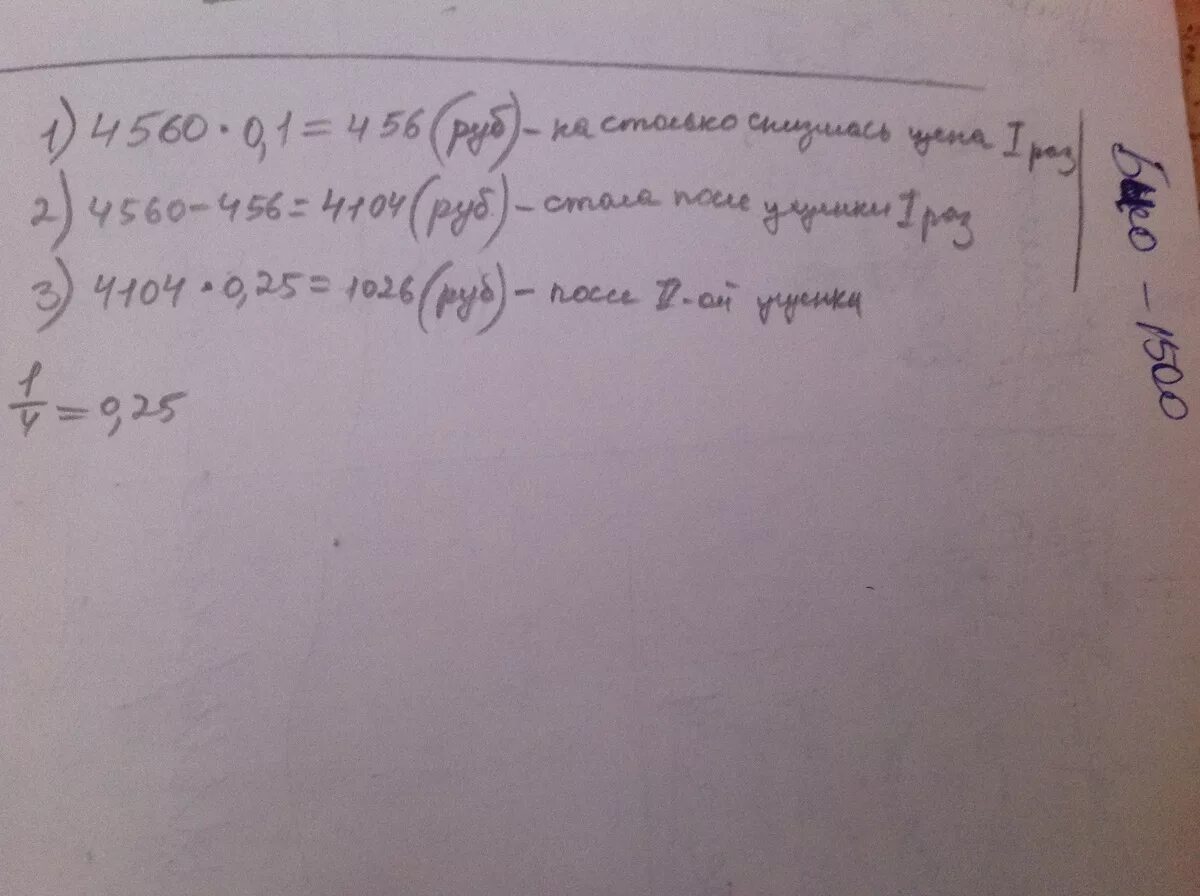 1) 4560 · 0,1 = 456 (руб) – на столько снизилась цена I раз
2) 4560 – 456 = 4104 (руб.) – стала после уценки I раз
3) 4104 · 0,25 = 1026 (руб) – после II-ой уценки
1/4 = 0,25
– 1500